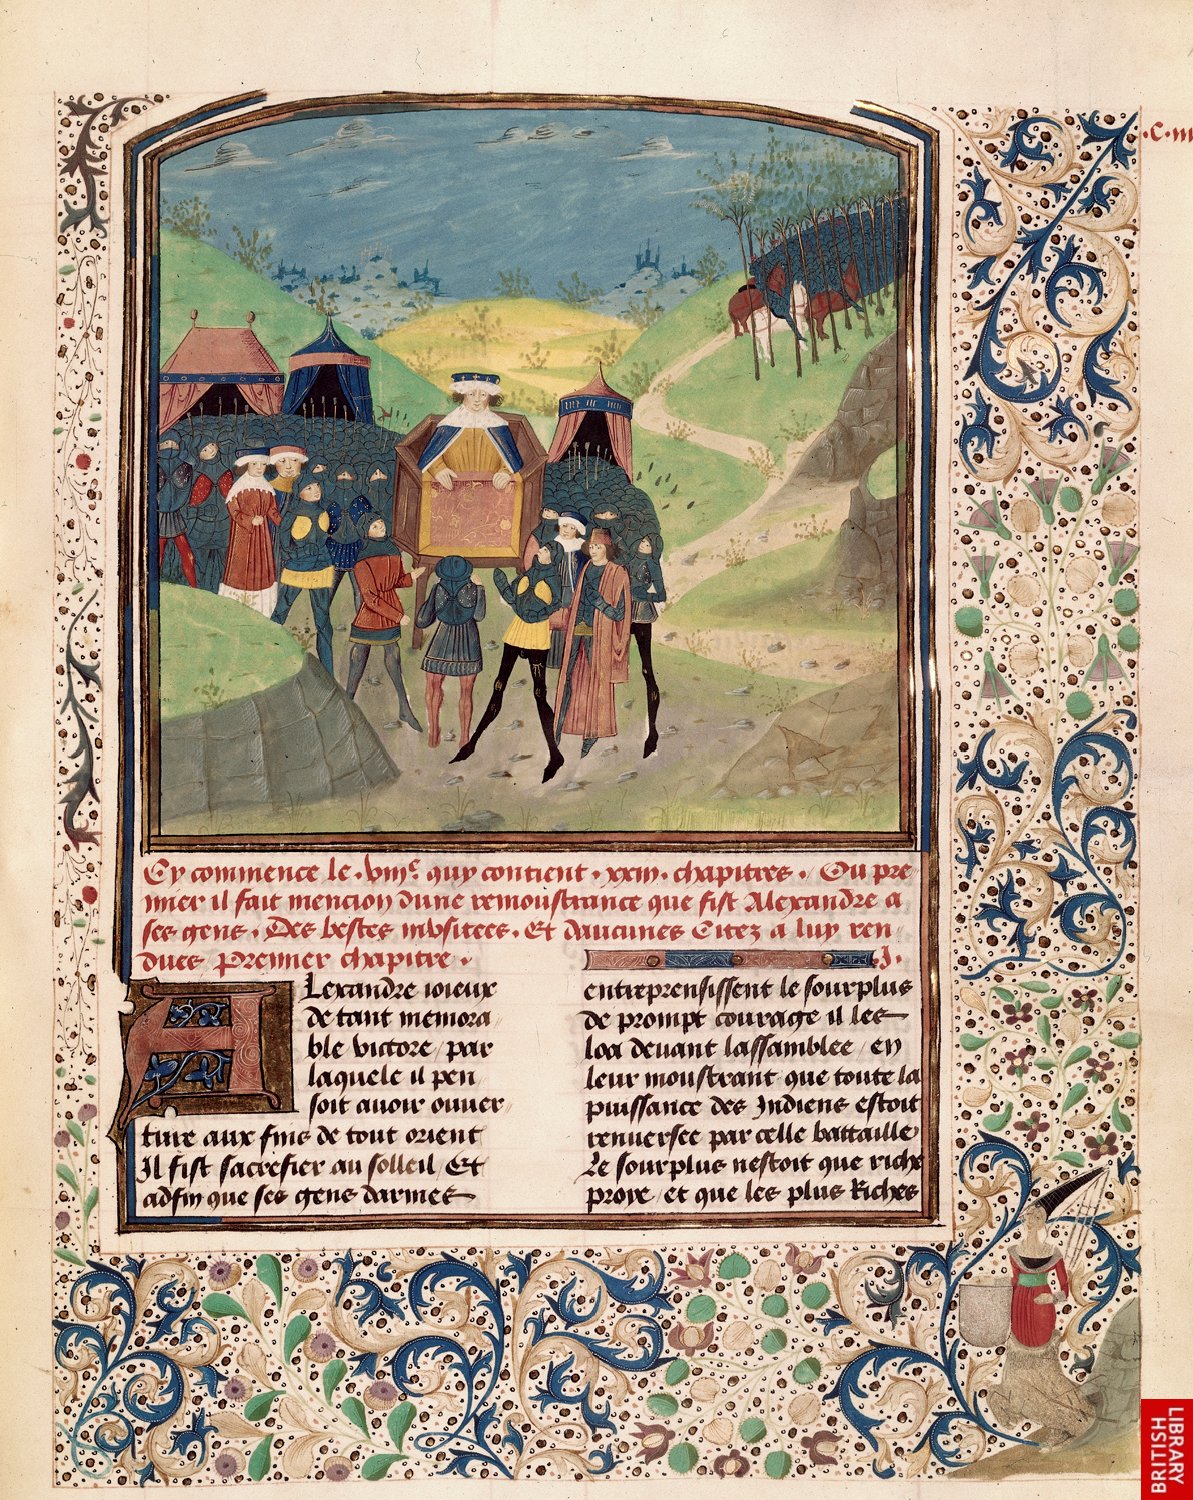 ·C·iii
Cy commence le ·viiie quy contient ·xxiii· chapitres · Ou pre
mier il fait mencion dune remoustrance que fist Alexandre a
ses gens · Des bestes inusitees · Et daucunes Citez a luy ren
dues Premier chapitre · J·
Alexandre ioieux
de tant memora
ble victore / par
laquele il pen
soit auoir ouuer
ture aux fins de tout orient
Il fist sacrefier au solleil / Et
adfin que ses gens darmes
entreprensissent le sourplus
de prompt courage il les
loa deuant lassamblee / en
leur moustrant que toute la
puissance des Indiens estoit
renuersee par celle battaille
Le sourplus nestoit que riche
proye / et que les plus Riches
BRITISH
LIBRARY